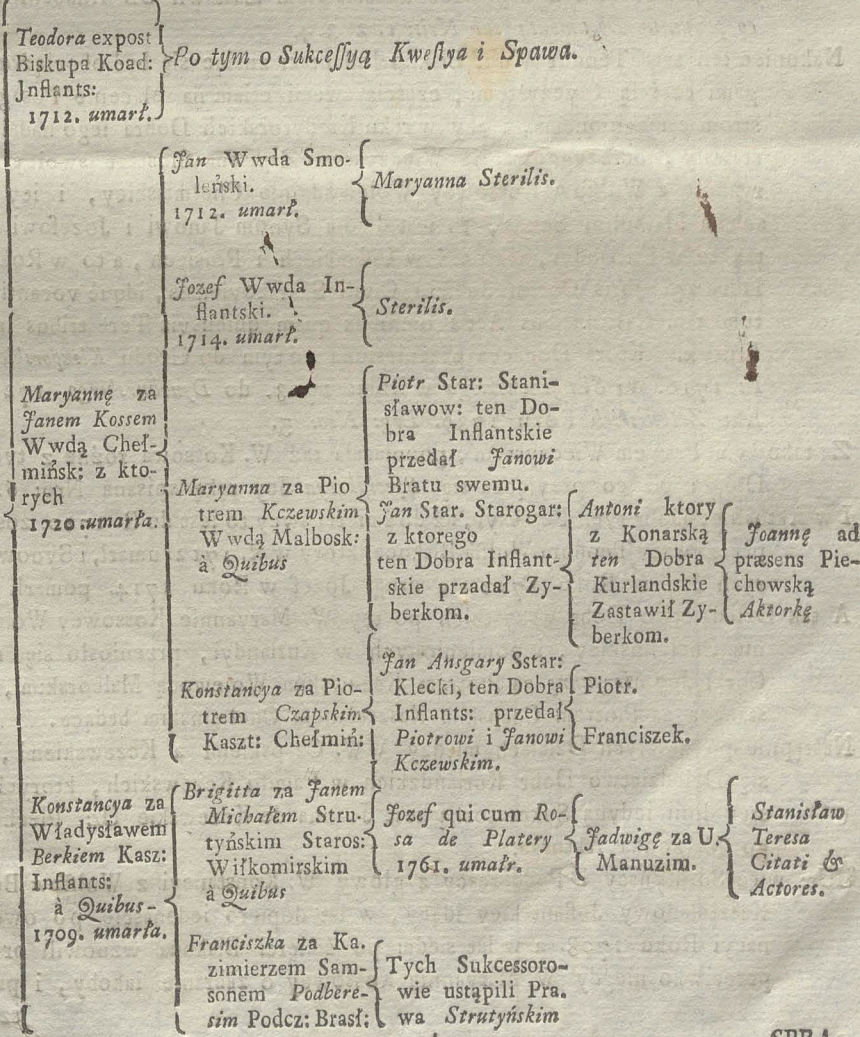 Teodora expost
Biskupa Koad:
Jnflants:
1712. umarł.
Po tym o Sukceſſyą Kweſlya i Spawa.
Jan Wwda Smo-
leński.
1712. umarł.
Maryanna Sterilis.
Jozef Wwda In-
flantski.
1714. umarł.
Sterilis.
Maryannę za
Janem Kossem
Wwdą Cheł-
mińsk: z kto-
rych
1720 umarła.
Maryanna za Pio
trem Kczewskim
Wwdą Malbosk:
à Quibus
Piotr Star: Stani-
sławow: ten Do-
bra Inflantskie
przedał Janowi
Bratu swemu.
Jan Star. Starogar:
z ktorego
ten Dobra Inflant-
skie przadał Zy-
berkom.
Antoni ktory
z Konarską
ten Dobra
Kurlandskie
Zastawił Zy-
berkom.
Joannę ad
præsens Pie-
chowską
Aktorkę
Konstancya za Pio-
trem Czapskim
Kaszt: Chełmiń:
Jan Ansgary Sstar:
Klecki, ten Dobra
Inflants: przedał
Piotrowi i Janowi
Kczewskim.
Piotr.
Franciszek.
Konstancya za
Władysławem
Berkiem Kasz:
Inflants:
à Quibus-
1709. umarła.
Brigitta za Janem
Michałem Stru-
tyńskim Staros:
Wiłkomirskim
à Quibus
Jozef qui cum Ro-
sa de Platery
1761. umałr.
Jadwigę za U.
Manuzim.
Stanisław
Teresa
Citati &
Actores.
Franciszka za Ka.
zimierzem Sam-
sonem Podbere-
sim Podcz: Brasł:
Tych Sukcessoro-
wie ustąpili Pra.
wa Strutyńskim